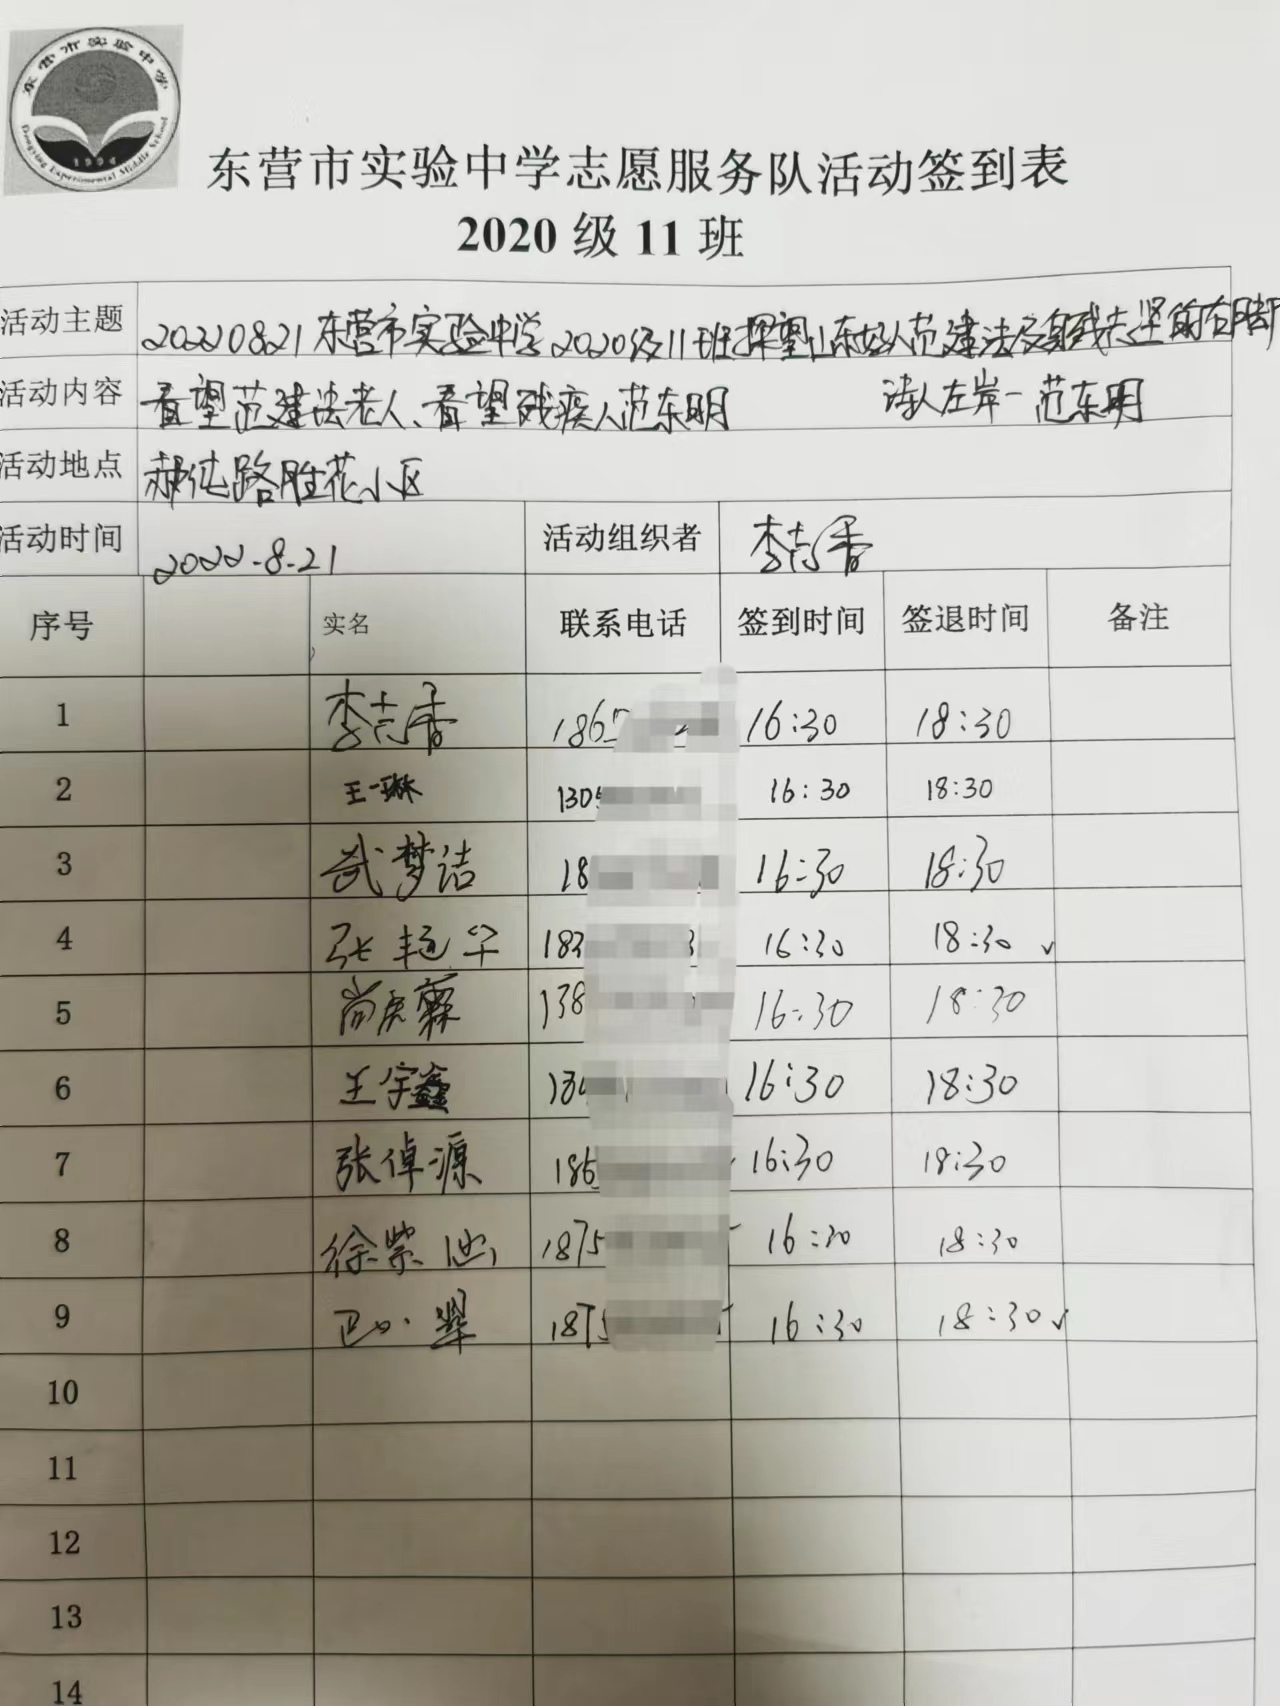 东营市实验中学
Dongying Experimental Middle School
1994
东营市实验中学志愿服务队活动签到表
2020 级 11 班
活动主题 20220821东营市实验中学2020级11班探望山东好人范建法及身残志坚的右脚
诗人左岸-范东明
活动内容 看望范建法老人、看望残疾人范东明
活动地点 郝纯路胜花小区
活动时间 2022-8-21 活动组织者 李志香
序号 实名 联系电话 签到时间 签退时间 备注
1 李志香 1865 16:30 18:30
2 王一琳 1305 16:30 18:30
3 武梦洁 18 16:30 18:30
4 张艳华 183 16:30 18:30 ✓
5 尚虎霖 138 16:30 18:30
6 王宇鑫 16:30 18:30
7 张倬源 186 16:30 18:30
8 徐紫 1875 16:30 18:30
9 1875 16:30 18:30 ✓
10
11
12
13
14